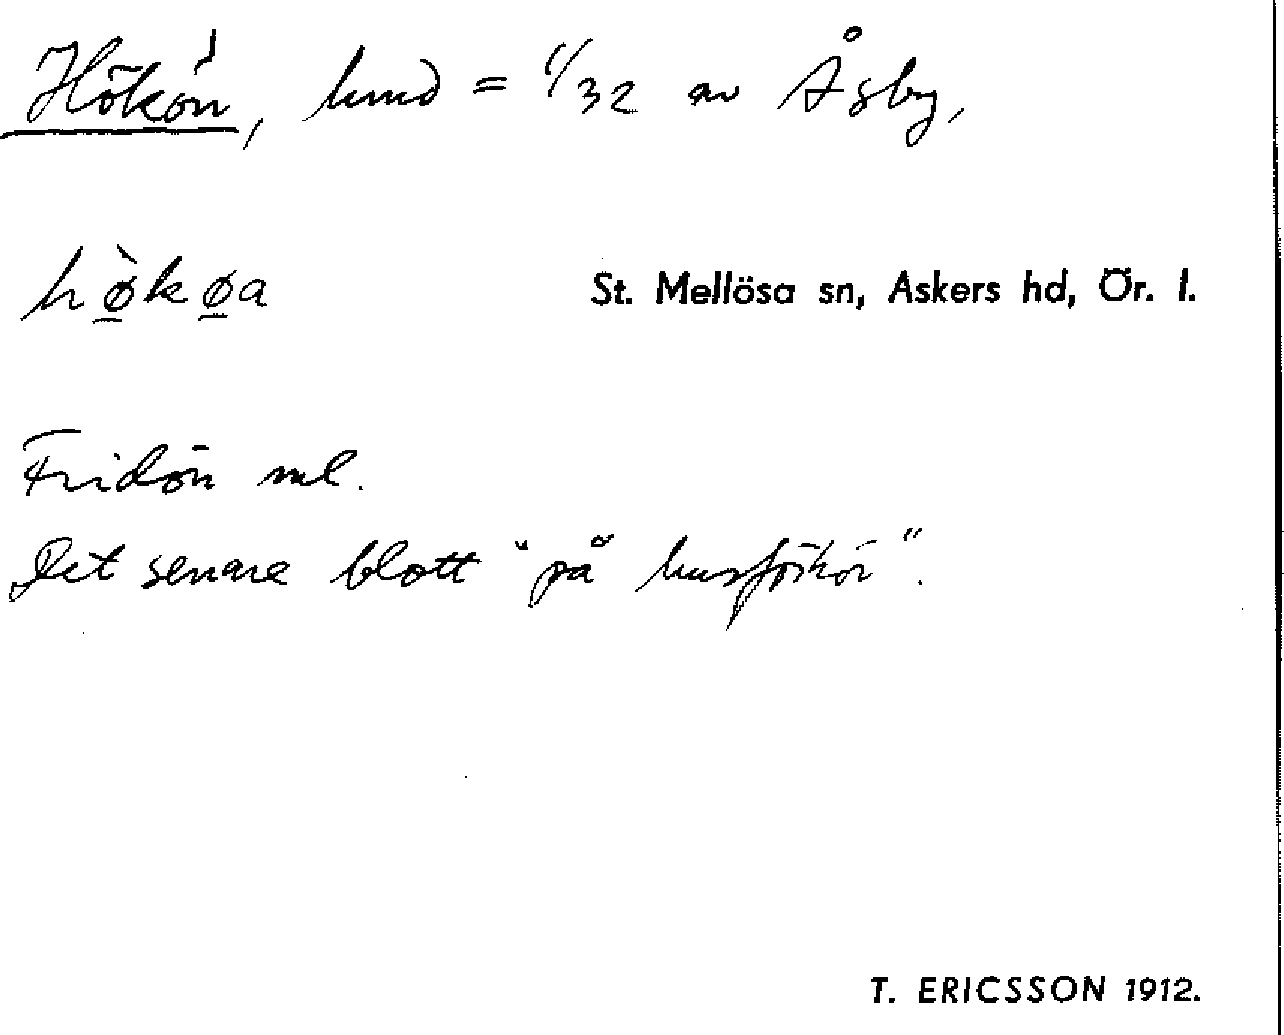 Hökön, lund = 1/32 av Åsby,
hø̀køa
St. Mellösa sn, Askers hd, Ör. l.
Fridön ml.
Det senare blott "på husförhör".
T. ERICSSON 1912.